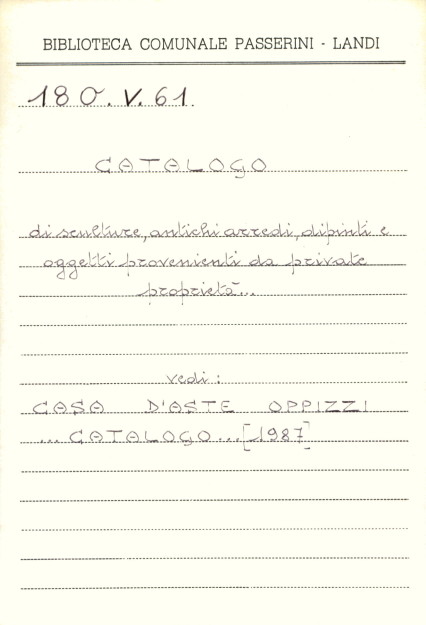 BIBLIOTECA COMUNALE PASSERINI - LANDI
180.V.61.
CATALOGO
di sculture, antichi arredi, dipinti e
oggetti provenienti da private
proprietà...
vedi:
CASA D'ASTE OPPIZZI
... CATALOGO...[1987]